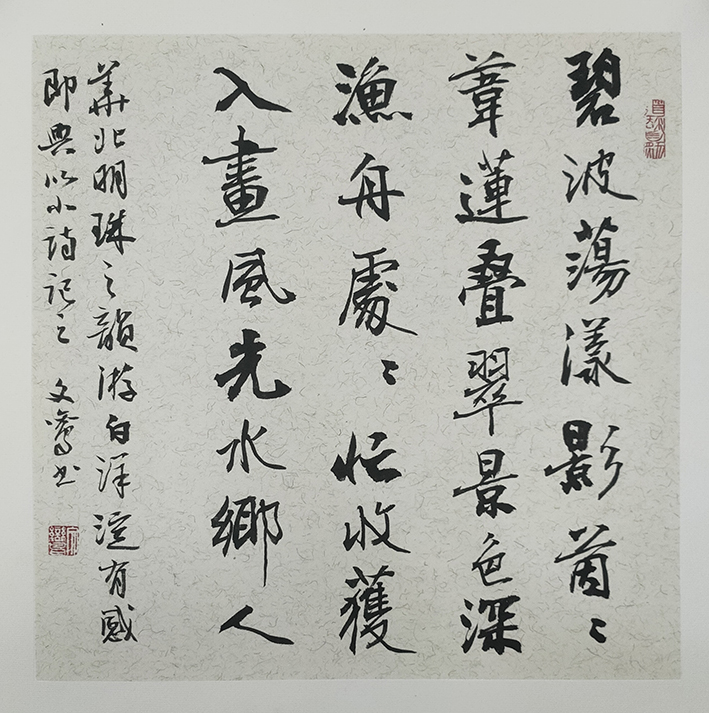 碧波蕩漾影茵々
葦蓮叠翠景色深
漁舟處々忙收獲
入畫風光水鄉人
華北明珠之韻游白洋淀有感
即興以小詩記之 文 书